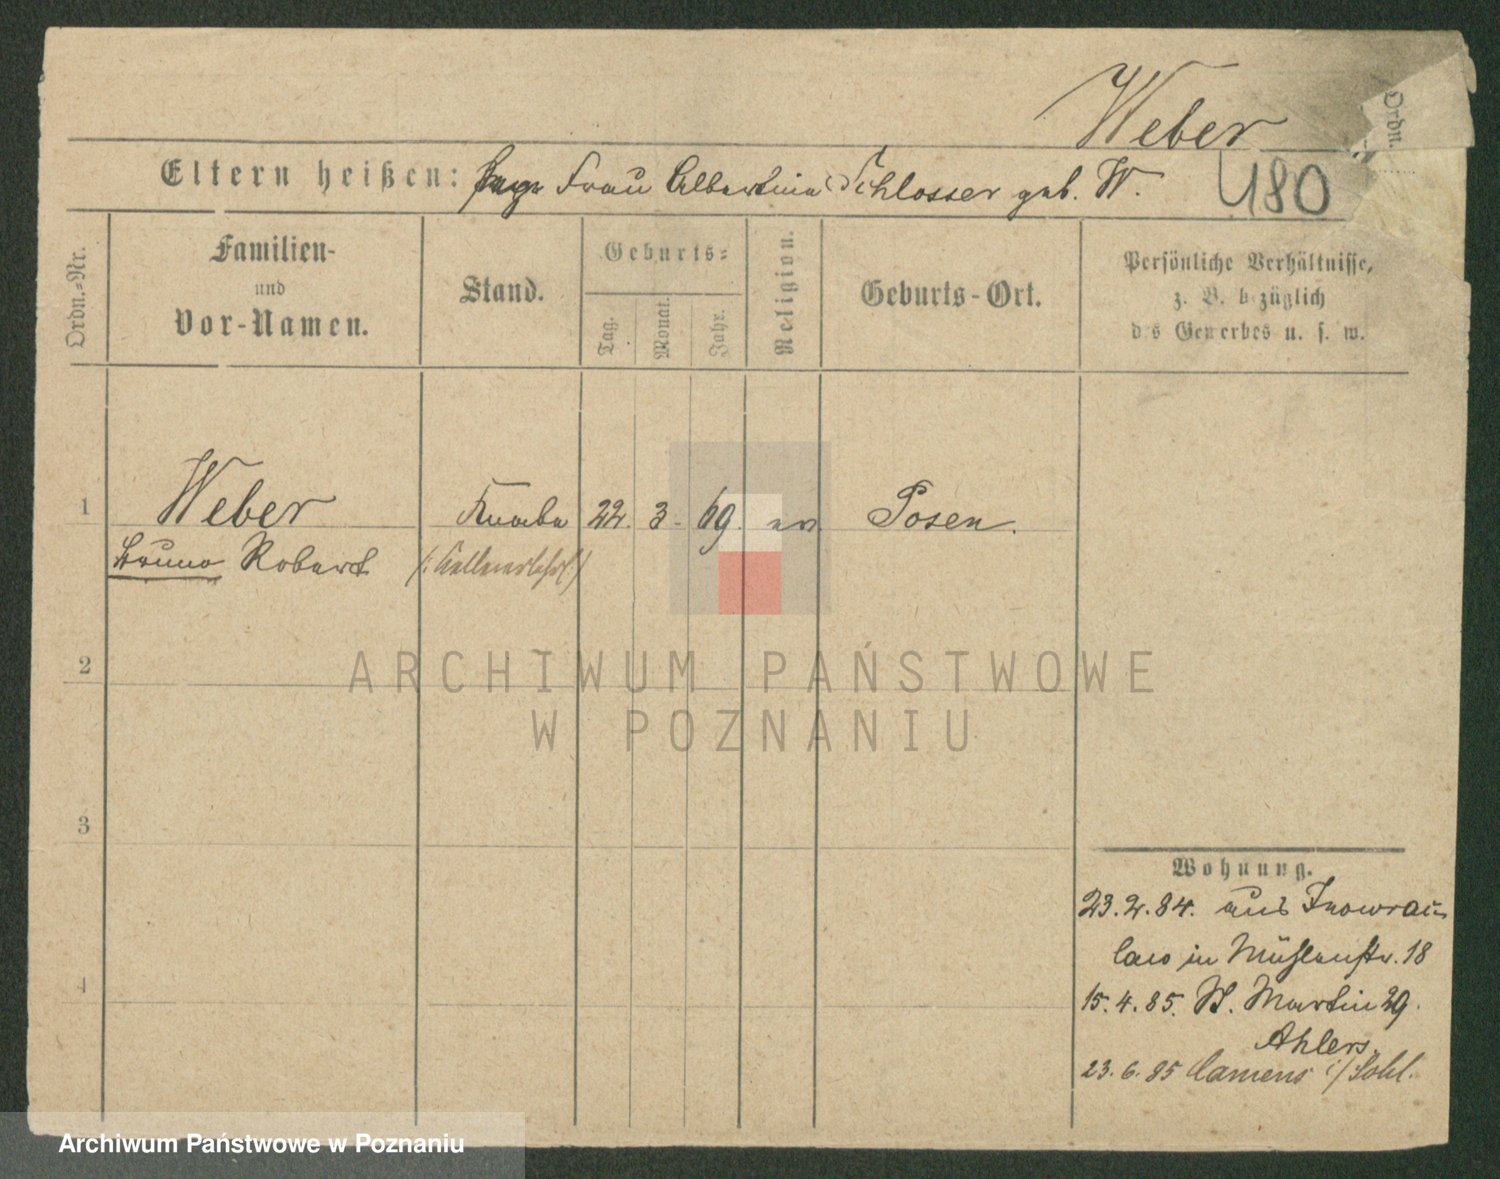 Weber
Ordn.
Eltern heißen: Frau Albertine Schlosser geb. W.
480
Ordn.-Nr.
Familien-
und
Vor-Namen.
Stand.
Geburts-
Tag.
Monat.
Jahr.
Religion.
Geburts-Ort.
Persönliche Verhältnisse,
z. B. bezüglich
des Gewerbes u. s. w.
1
Weber Knabe 22. 3. 69. ev. Posen.
Bruno Robert (: Kellnerlehrl :)
2
ARCHIWUM PAŃSTWOWE
W POZNANIU
3
Wohnung.
23.2.84. aus Inowraz-
law in Mühlenstr. 18
4
15.4.85. St. Martin 29.
Ahlers.
23.6.85 Camens i/ Schl.
Archiwum Państwowe w Poznaniu